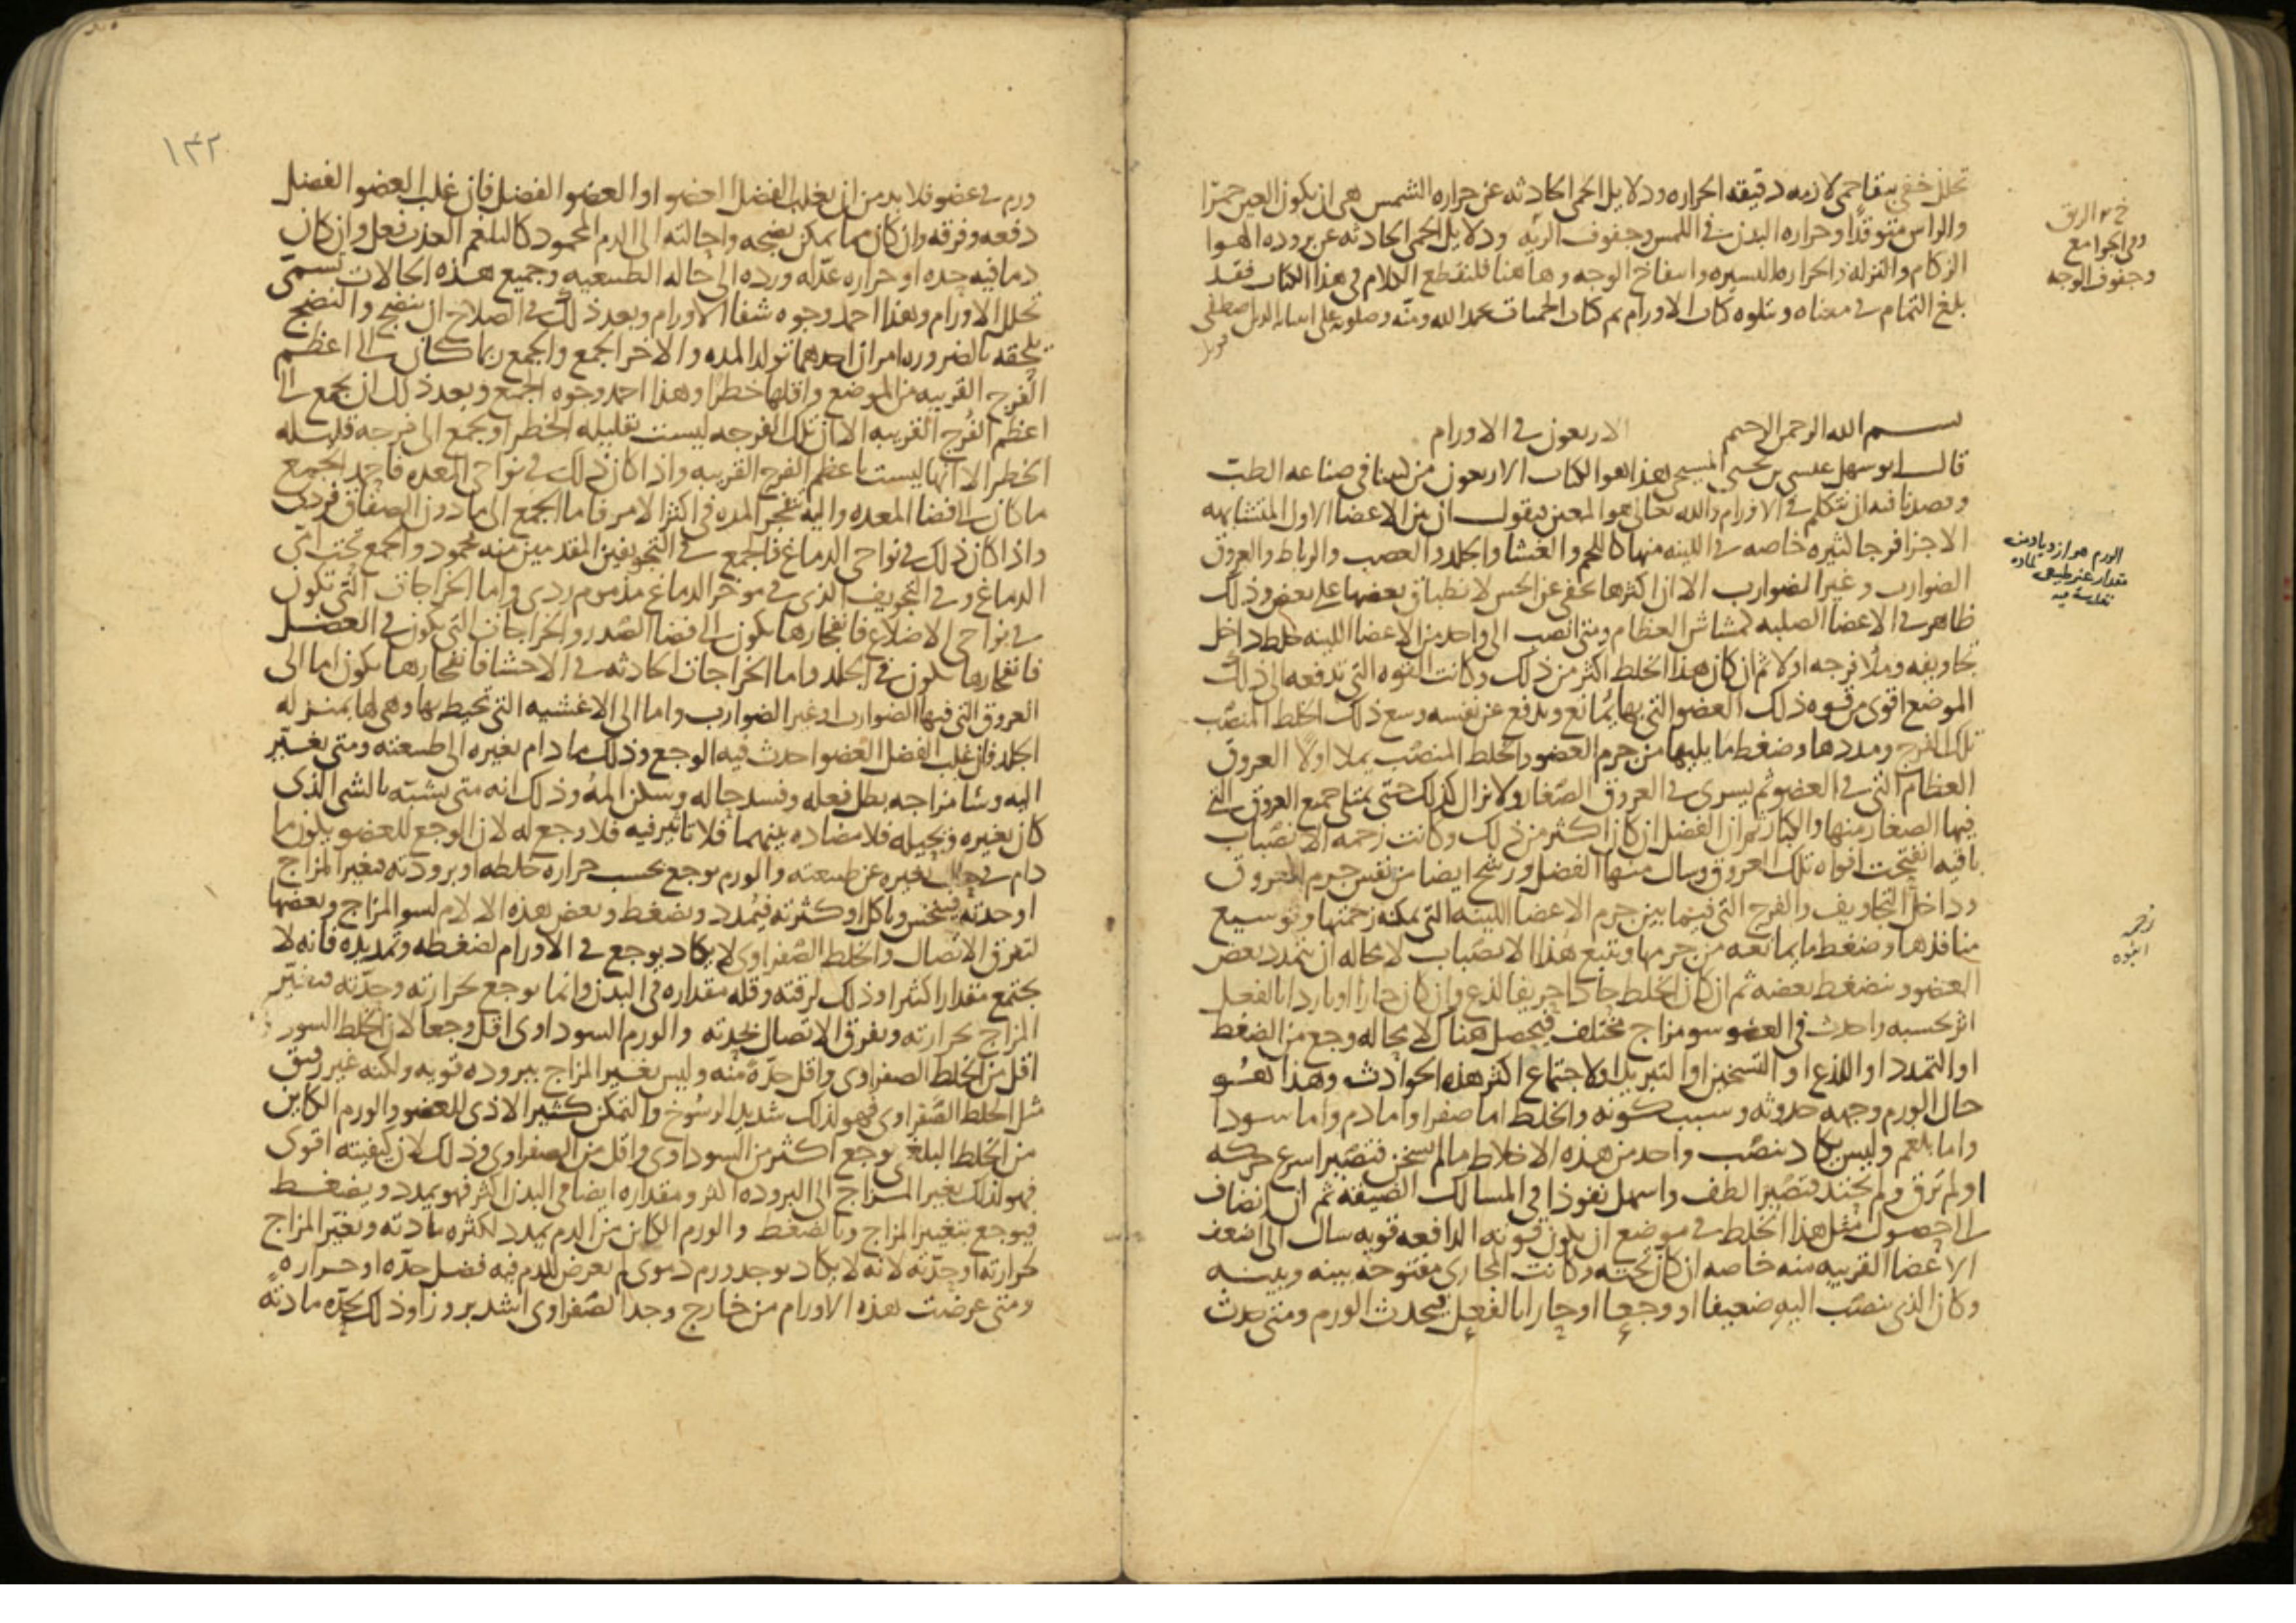 تحلل خفي يتقاحمى لازمه دقيقه الحراره ودلايل الحمى الحادثه عن حراره الشمس هى ان يكون العين حمرا
والراس متوقدا وحراره البدن فى اللمس وجفوف الريه ودلايل الحمى الحادثه عن بروده الهوا
الزكام والنزله والحراره اليسيره وانتفاخ الوجه وهاهنا فلنقطع الكلام فى هذا الكتاب فقد
بلغ التمام فى معناه ويتلوه كتاب الاورام تم كتاب الحميات بحمد الله ومنه وصلوته على
بسم الله الرحمن الرحيم الاربعون فى الاورام
قال ابو سهل عيسى بن يحيى المسيحى هذا هو الكتاب الاربعون من كتبنا فى صناعه الطب
وقصدنا فيه ان نتكلم فى الاورام والله تعالى هو المعين فيقول ان بين الاعضا الاول المتشابهه
الاجزا فرجا كثيره خاصه فى اللينه منها كاللحم والغشا والجلد والعصب والرباط والعروق
الضوارب وغير الضوارب الا ان اكثرها يخفى عن الحس لانطباق بعضها على بعض وذلك
ظاهر فى الاعضا الصلبه كمشاش العظام ومتى انصب الى واحد من الاعضا اللينه خلط داخل
تجاويفه وملا فرجه اولا ثم ان كان هذا الخلط اكثر من ذلك وكانت القوه التى تدفعه الى ذلك
الموضع اقوى من قوه ذلك العضو التى بها يمانع ويدفع عن نفسه وسع ذلك الخلط المنصب
تلك الفرج ومددها وضغط ما يليها من جرم العضو والخلط المنصب يملا اولا العروق
العظام التى فى العضو ثم يسرى فى العروق الصغار ولا يزال كذلك حتى يمتلى جميع العروق التى
فيها الصغار منها والكبار ثم ان الفضل ان كان اكثر من ذلك وكانت زحمه الانصباب
باقيه انفتحت افواه تلك العروق وسال منها الفضل ورشح ايضا من نفس جرم العروق
وداخل التجاويف والفرج التى فيما بين جرم الاعضا اللينه التى يمكنه زحمتها وتوسيع
منافذها وضغط ما يمانعه من جرمها ويتبع هذا الانصباب لا محاله ان يتمدد بعض
العضو وينضغط بعضه ثم ان كان الخلط حادا حريفا لذع وان كان حارا او باردا بالفعل
اثر بحسبه واحدث فى العضو سو مزاج مختلف فيحصل هناك لا محاله وجع من الضغط
او التمدد او اللذع او التسخين او التبريد او لاجتماع اكثر هذه الحوادث وهذا هو
حال الورم وجهه حدوثه وسبب كونه والخلط اما صفرا واما دم واما سودا
واما بلغم وليس يكاد ينصب واحد من هذه الاخلاط ما لم يسخن فتصير اسرع حركه
او لم ترق ولم يحتد فتصير الطف واسهل نفوذا فى المسالك الضيقه ثم ان انضاف
الى حصول مثل هذا الخلط فى موضع ان يكون قوته الدافعه قويه سال الى اضعف
الاعضا القريبه منه خاصه ان كان تحته وكانت المجارى مفتوحه بينه وبينه
وكان الذى ينصب اليه ضعيفا او وجعا او حارا بالفعل فيحدث الورم ومتى حدث
وجفوف الوجه
الورم هو ازدياد من
مقدار غير طبيعى لماده
زحمه
١٤٢
ورم فى عضو فلا بد من ان يغلب الفضل العضو او العضو الفضل فان غلب العضو الفضل
دفعه وفرقه وان كان مما يمكن نضجه واحالته الى الدم المحمود كالبلغم العذب فعل وان كان
دما فيه حده او حراره عدله ورده الى حاله الطبيعيه وجميع هذه الحالات تسمى
تحلل الاورام وهذا احمد وجوه شفا الاورام وبعد ذلك فى الصلاح ان ينضج والنضج
يلحقه بالضروره امران احدهما تولد المده والاخر الجمع والجمع ربما كان الى اعظم
الفرج القريبه من الموضع واقلها خطرا وهذا احمد وجوه الجمع وبعد ذلك ان يجمع الى
اعظم الفرج القريبه الا ان تلك الفرجه ليست بقليله الخطر او يجمع الى فرجه قليله
الخطر الا انها ليست باعظم الفرج القريبه واذا كان ذلك فى نواحى المعده فاحمد الجمع
ما كان الى فضا المعده واليه تنفجر المده فى اكثر الامر فاما الجمع الى ما دون الصفاق فردى
واذا كان ذلك فى نواحى الدماغ فالجمع فى التجويفين المقدمين منه محمود والجمع تحت امى
الدماغ وفى التجويف الذى فى موخر الدماغ مذموم ردى واما الخراجات التى تكون
فى نواحى الاضلاع فانفجارها يكون الى فضا الصدر والخراجات التى يكون فى العضل
فانفجارها يكون فى الجلد واما الخراجات الحادثه فى الاحشا فانفجارها يكون اما الى
العروق التى فيها الضوارب او غير الضوارب واما الى الاغشيه التى تحيط بها وهى لها بمنزله
الجلد فان غلب الفضل العضو احدث فيه الوجع وذلك ما دام يغيره الى طبيعته ومتى تغير
اليه وشا مزاجه بطل فعله وفسد حاله وسكن المه وذلك انه متى يشبه بالشى الذى
كان يغيره ويحيله فلا مضاده بينهما فلا تاثير فيه فلا وجع له لان الوجع للعضو يكون ما
دام فى حال تغيره عن طبيعته والورم يوجع بحسب حراره خلطه او برودته فيغير المزاج
او حدته فينخس وياكل او كثرته فيمدد ويضغط وبعض هذه الالام لسو المزاج وبعضها
لتفرق الاتصال والخلط الصفراوى لا يكاد يوجع فى الاورام لضغطه وتمديده فانه لا
يجتمع مقدارا كثيرا وذلك لرقته وقله مقداره فى البدن وانما يوجع بحرارته وحدته فيغير
المزاج بحرارته ويفرق الاتصال بحدته والورم السوداوى اقل وجعا لان الخلط السود
اقل من الخلط الصفراوى واقل حدة منه وليس يغير المزاج ببروده قويه ولكنه غير رقيق
مثل الخلط الصفراوى فهو لذلك شديد الرسوخ والتمكن كثير الاذى للعضو والورم الكاين
من الخلط البلغمى يوجع اكثر من السوداوى واقل من الصفراوى وذلك لان كيفيته اقوى
فهو لذلك يغير المزاج الى البروده اكثر ومقداره ايضا فى البدن اكثر فهو يمدد ويضغط
فيوجع بتغيير المزاج وبالضغط والورم الكاين من الدم يمدد لكثره مادته ويغير المزاج
بحرارته او حدته لانه لا يكاد يوجد ورم دموى لم يعرض للدم فيه فضل حده او حراره
ومتى عرضت هذه الاورام من خارج وجد الصفراوى اشد بروزا وذلك لحده مادته